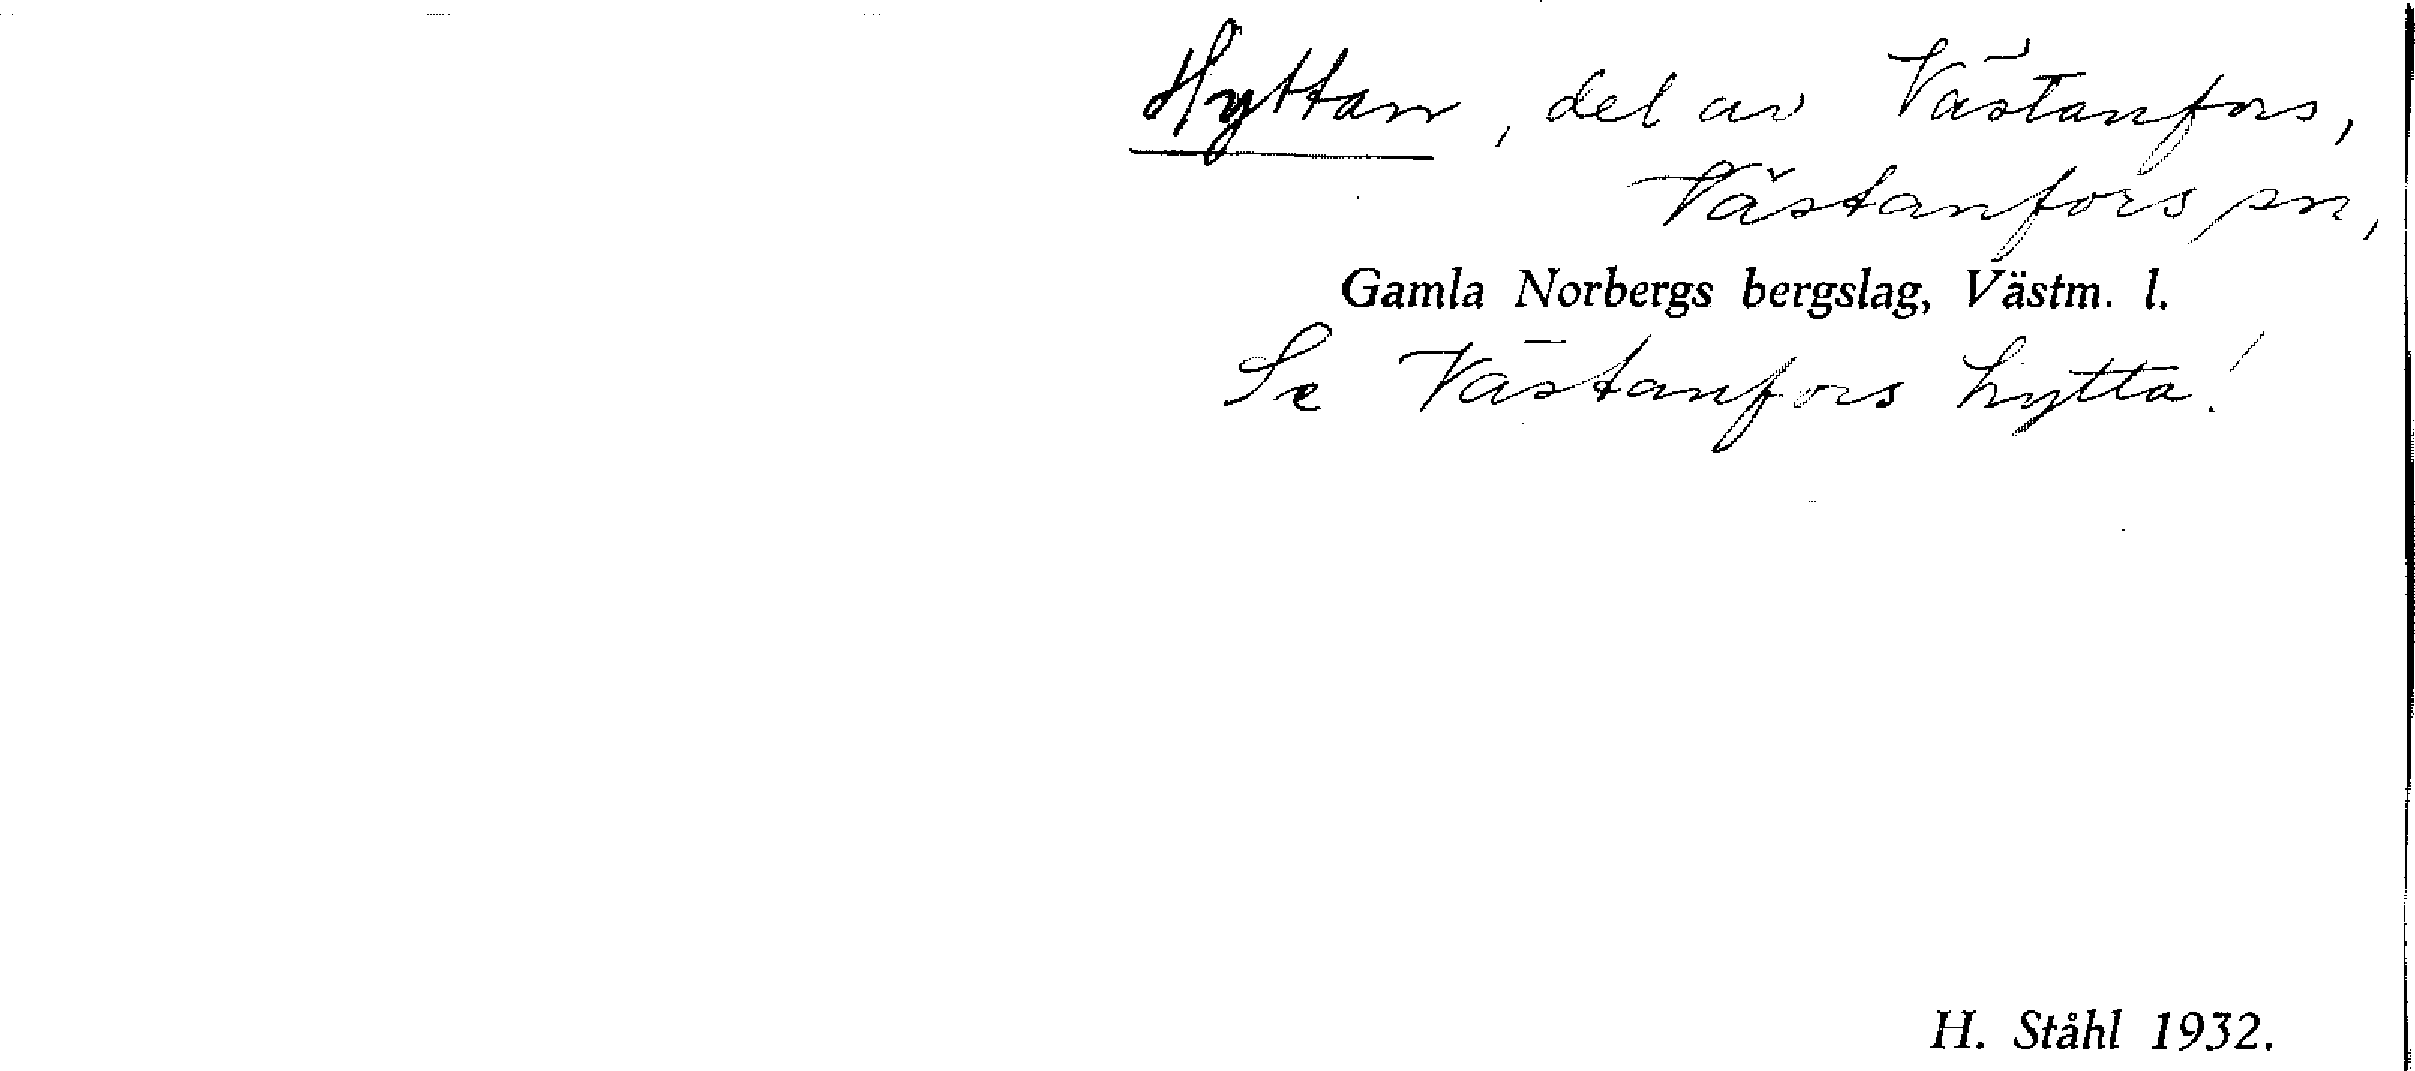 Hyttan, del av Västanfors,
Västanfors sn,
Gamla Norbergs bergslag, Västm. l.
Se Västanfors hytta!
H. Ståhl 1932.